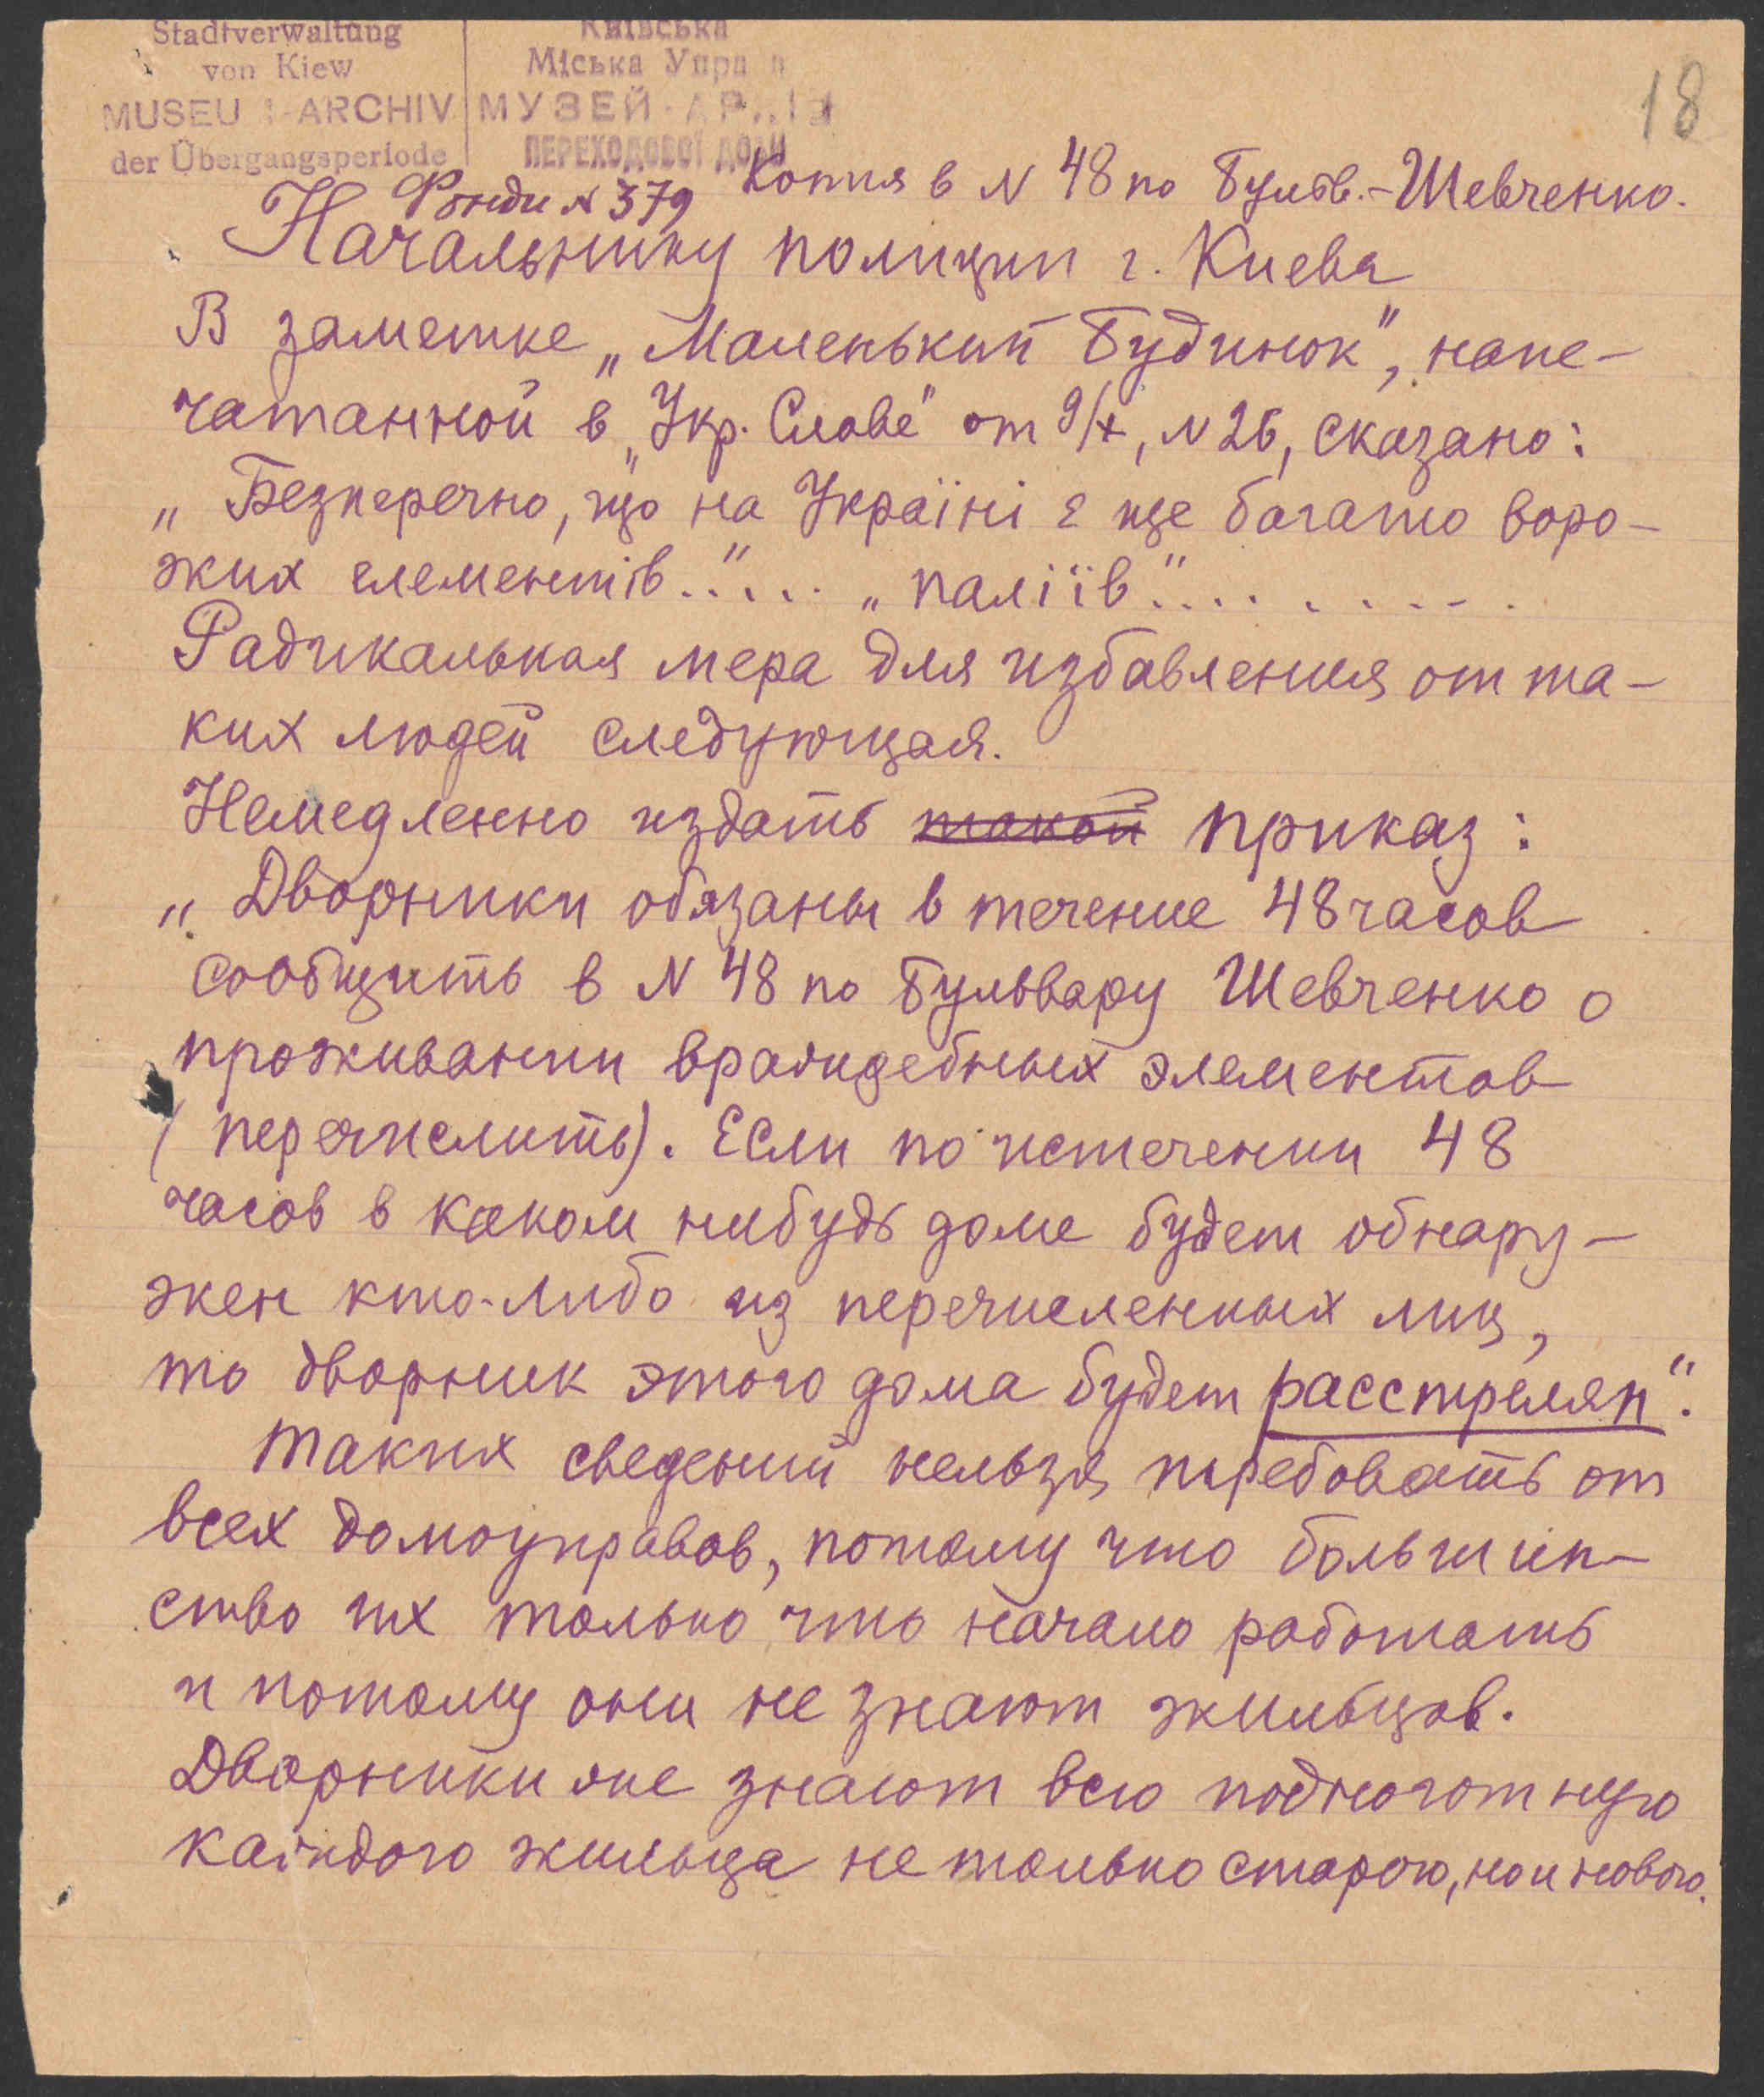 Stadtverwaltung
von Kiew
MUSEU -ARCHIV
der Übergangsperiode
Київська
Міська Упра
МУЗЕЙ-
ПЕРЕХОДОВОЇ ДОБИ
18
Фонди № 379
Копия в N 48 по Бульв.-Шевченко.
Начальнику полиции г. Киева
В заметке „Маленький будинок", напе-
чатанной в „Укр. Слове" от 9/х, N 26, сказано:
„Безперечно, що на Україні є ще багато воро-
жих елементів..".... „паліїв"..........
Радикальная мера для избавления от та-
ких людей следующая.
Немедленно издать такой приказ:
„Дворники обязаны в течение 48 часов
сообщить в N 48 по Бульвару Шевченко о
проживании враждебных элементов
(перечислить). Если по истечении 48
часов в каком нибудь доме будет обнару-
жен кто-либо из перечисленных лиц,
то дворник этого дома будет расстрелян".
Таких сведений нельзя требовать от
всех домоуправов, потому что большин-
ство их только что начало работать
и потому они не знают жильцов.
Дворники же знают всю подноготную
каждого жильца не только старого, но и нового.